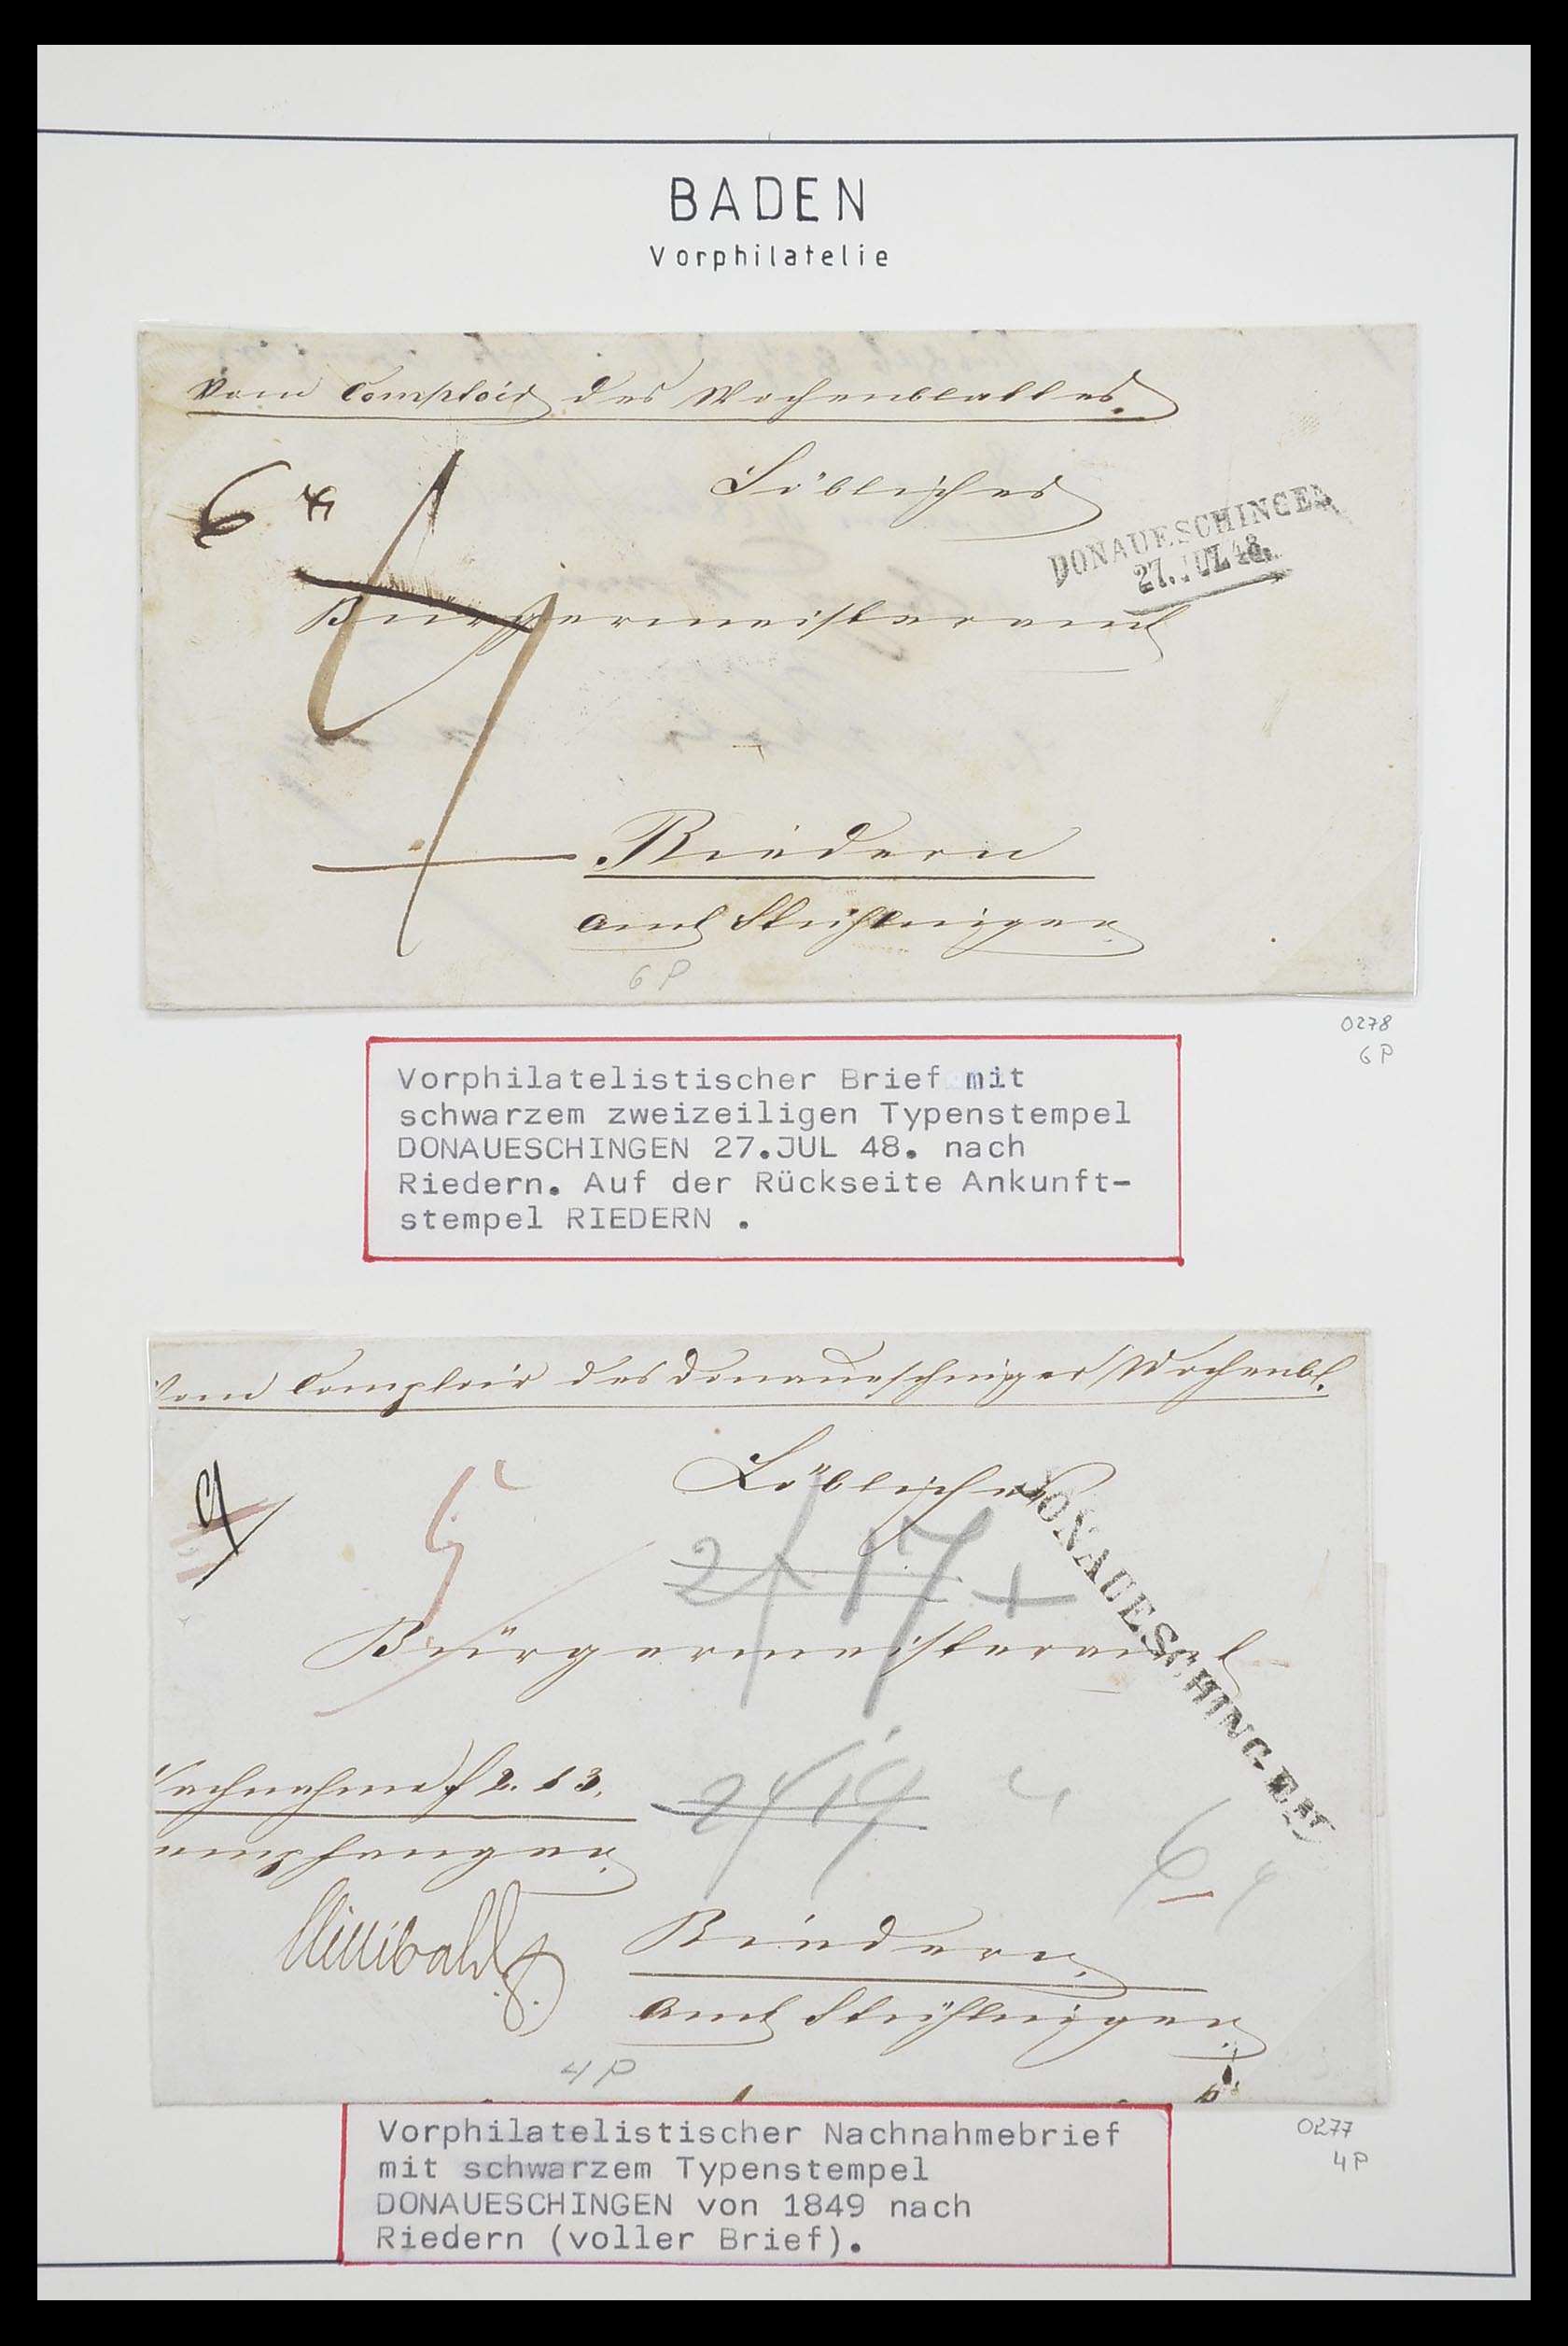 BADEN
Vorphilatelie
Vom Comptoir des Wochenblattes.
Löbliches
6 x
DONAUESCHINGEN
27. JUL 48.
Bürgermeisteramt
Riedern
Amt Stühlingen
6 P
0278
6 P
Vorphilatelistischer Brief mit
schwarzem zweizeiligen Typenstempel
DONAUESCHINGEN 27.JUL 48. nach
Riedern. Auf der Rückseite Ankunft-
stempel RIEDERN .
Vom Comptoir des Donaueschinger Wochenbl.
Löbliches
DONAUESCHINGEN
Bürgermeisteramt
Nachnahme f 2. 13.
empfangen
Willibald
6
Riedern
Amt Stühlingen
4 P
0277
4 P
Vorphilatelistischer Nachnahmebrief
mit schwarzem Typenstempel
DONAUESCHINGEN von 1849 nach
Riedern (voller Brief).